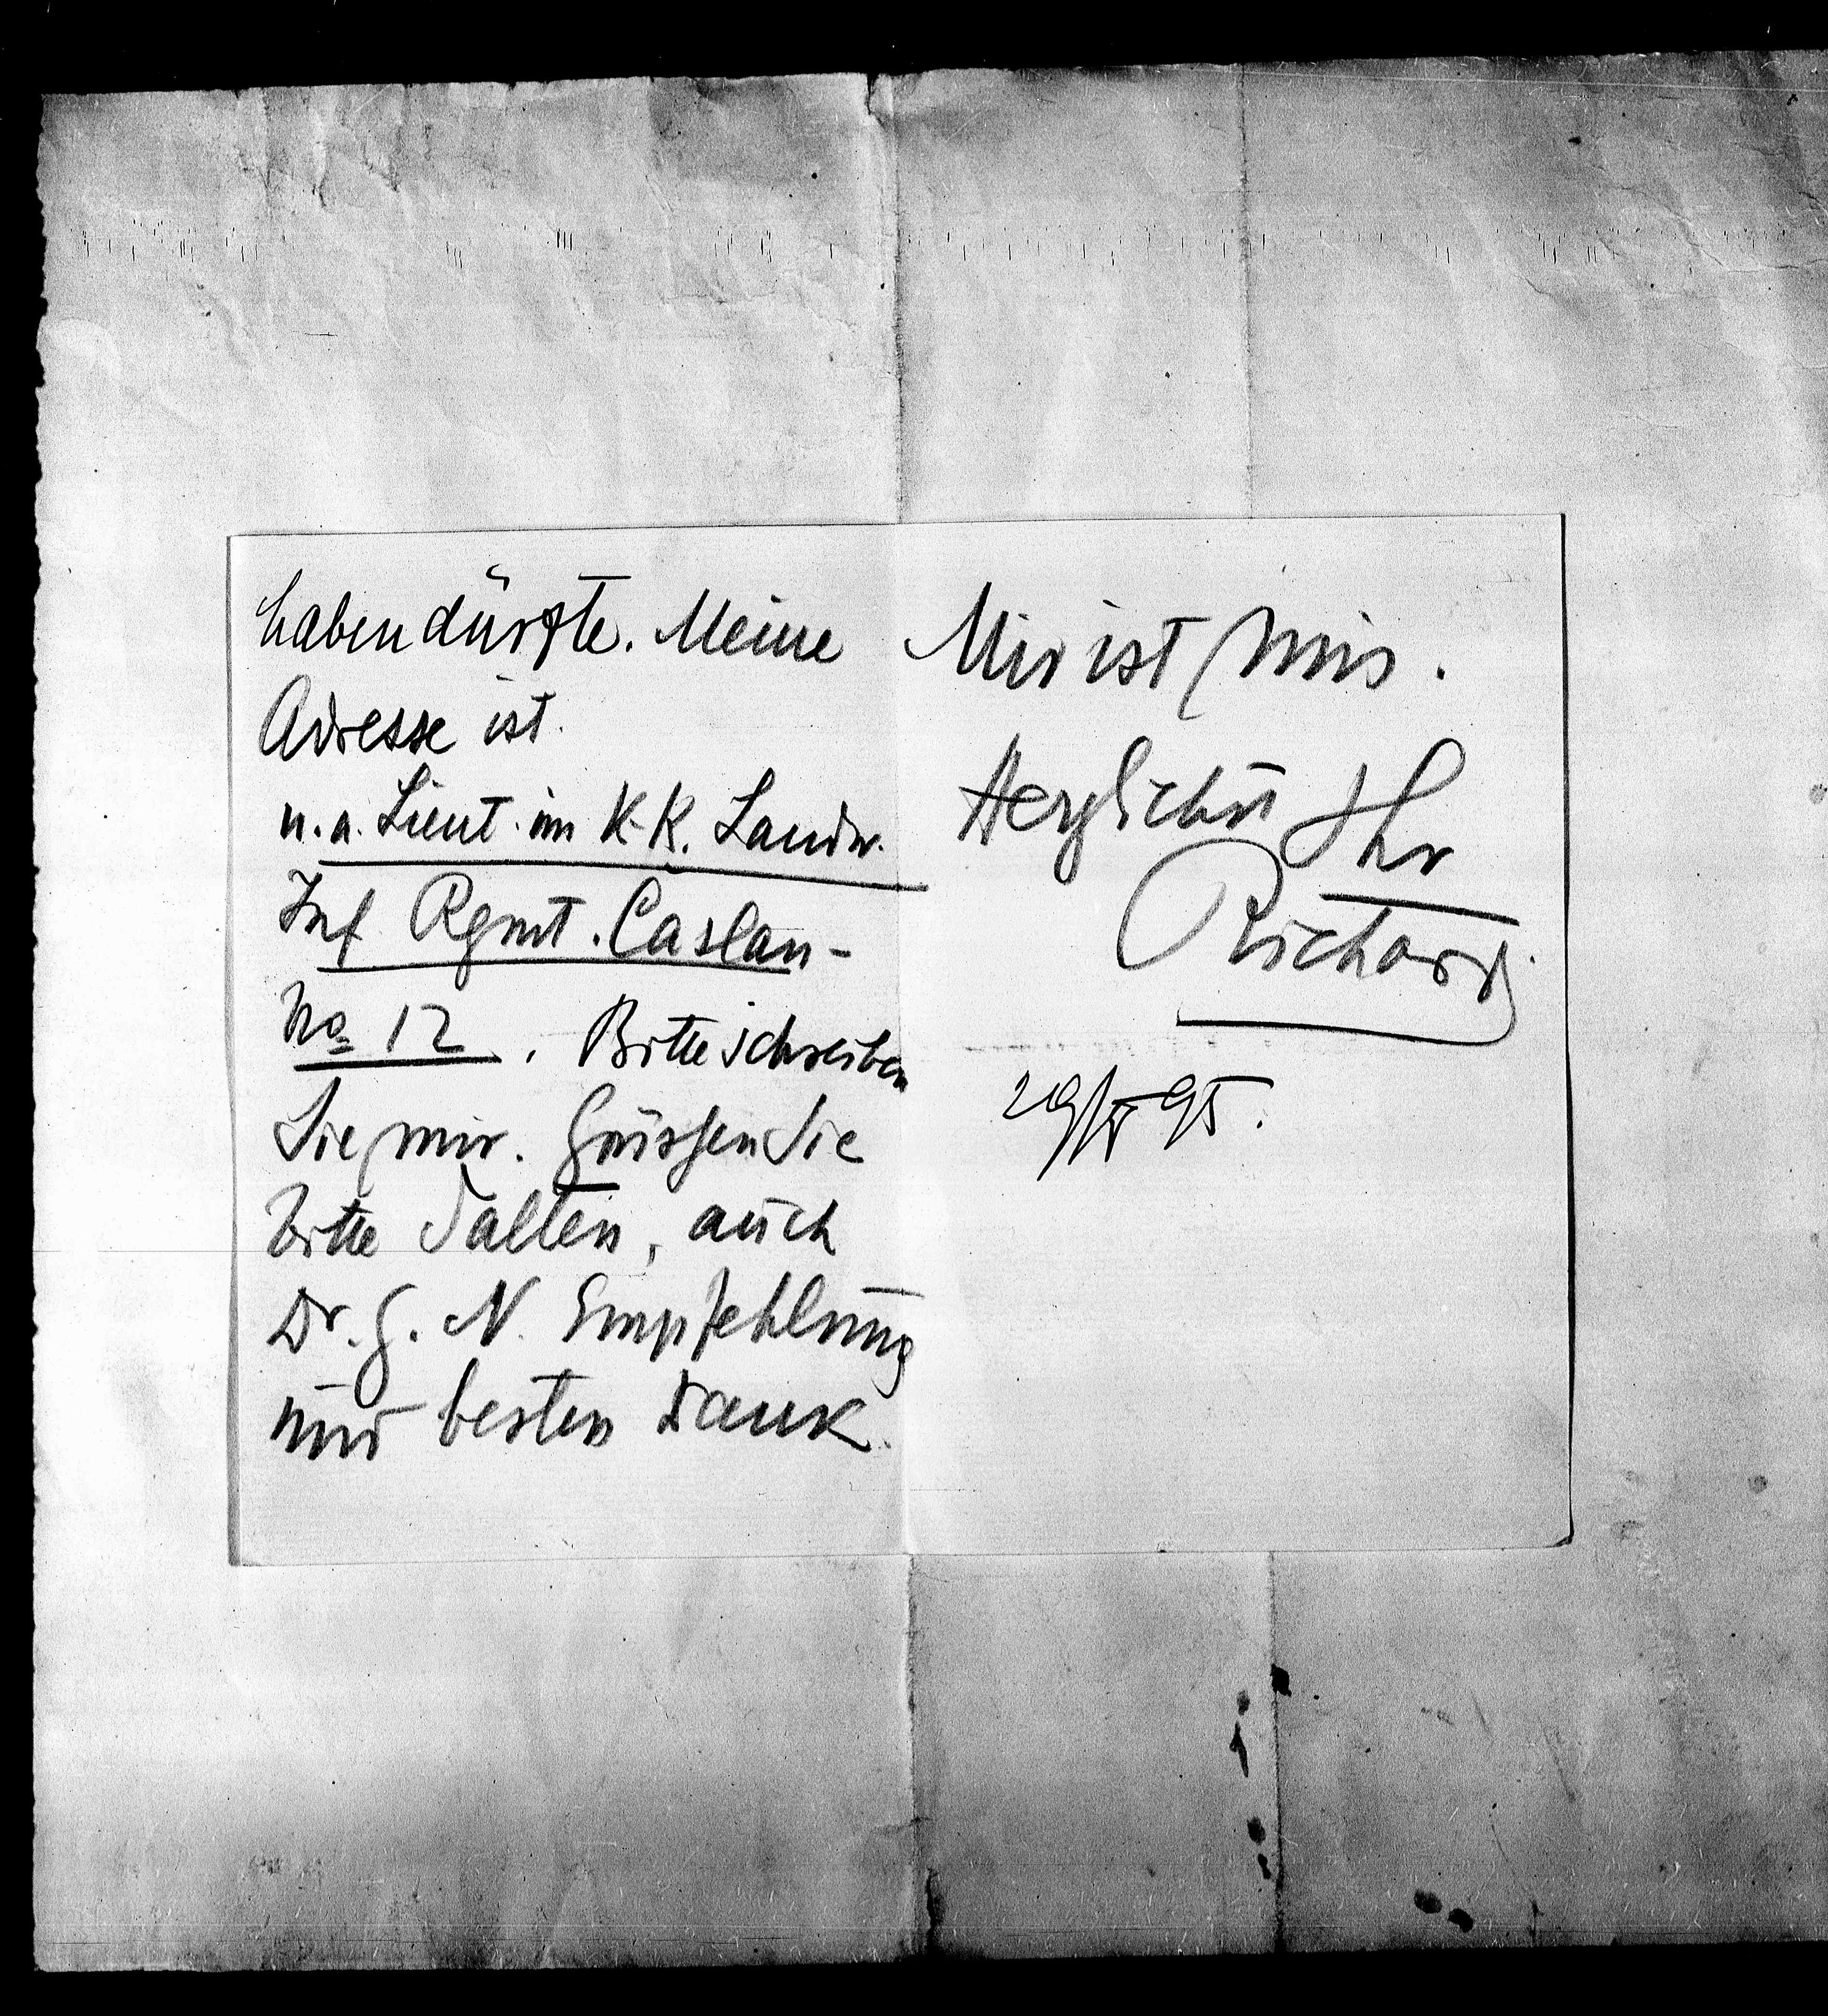 haben dürfte. Meine
Adresse ist.
n. a. Lieut. im K. K. Landw.
Inf Rgmt. Časlau-
No 12. Bitte schreiben
Sie mir. Grüssen Sie
bitte Salten, auch
Dr. G. N. Empfehlung
und besten Dank.
Mir ist mies.
Herzlichst Ihr
Richard
29/IV 95.